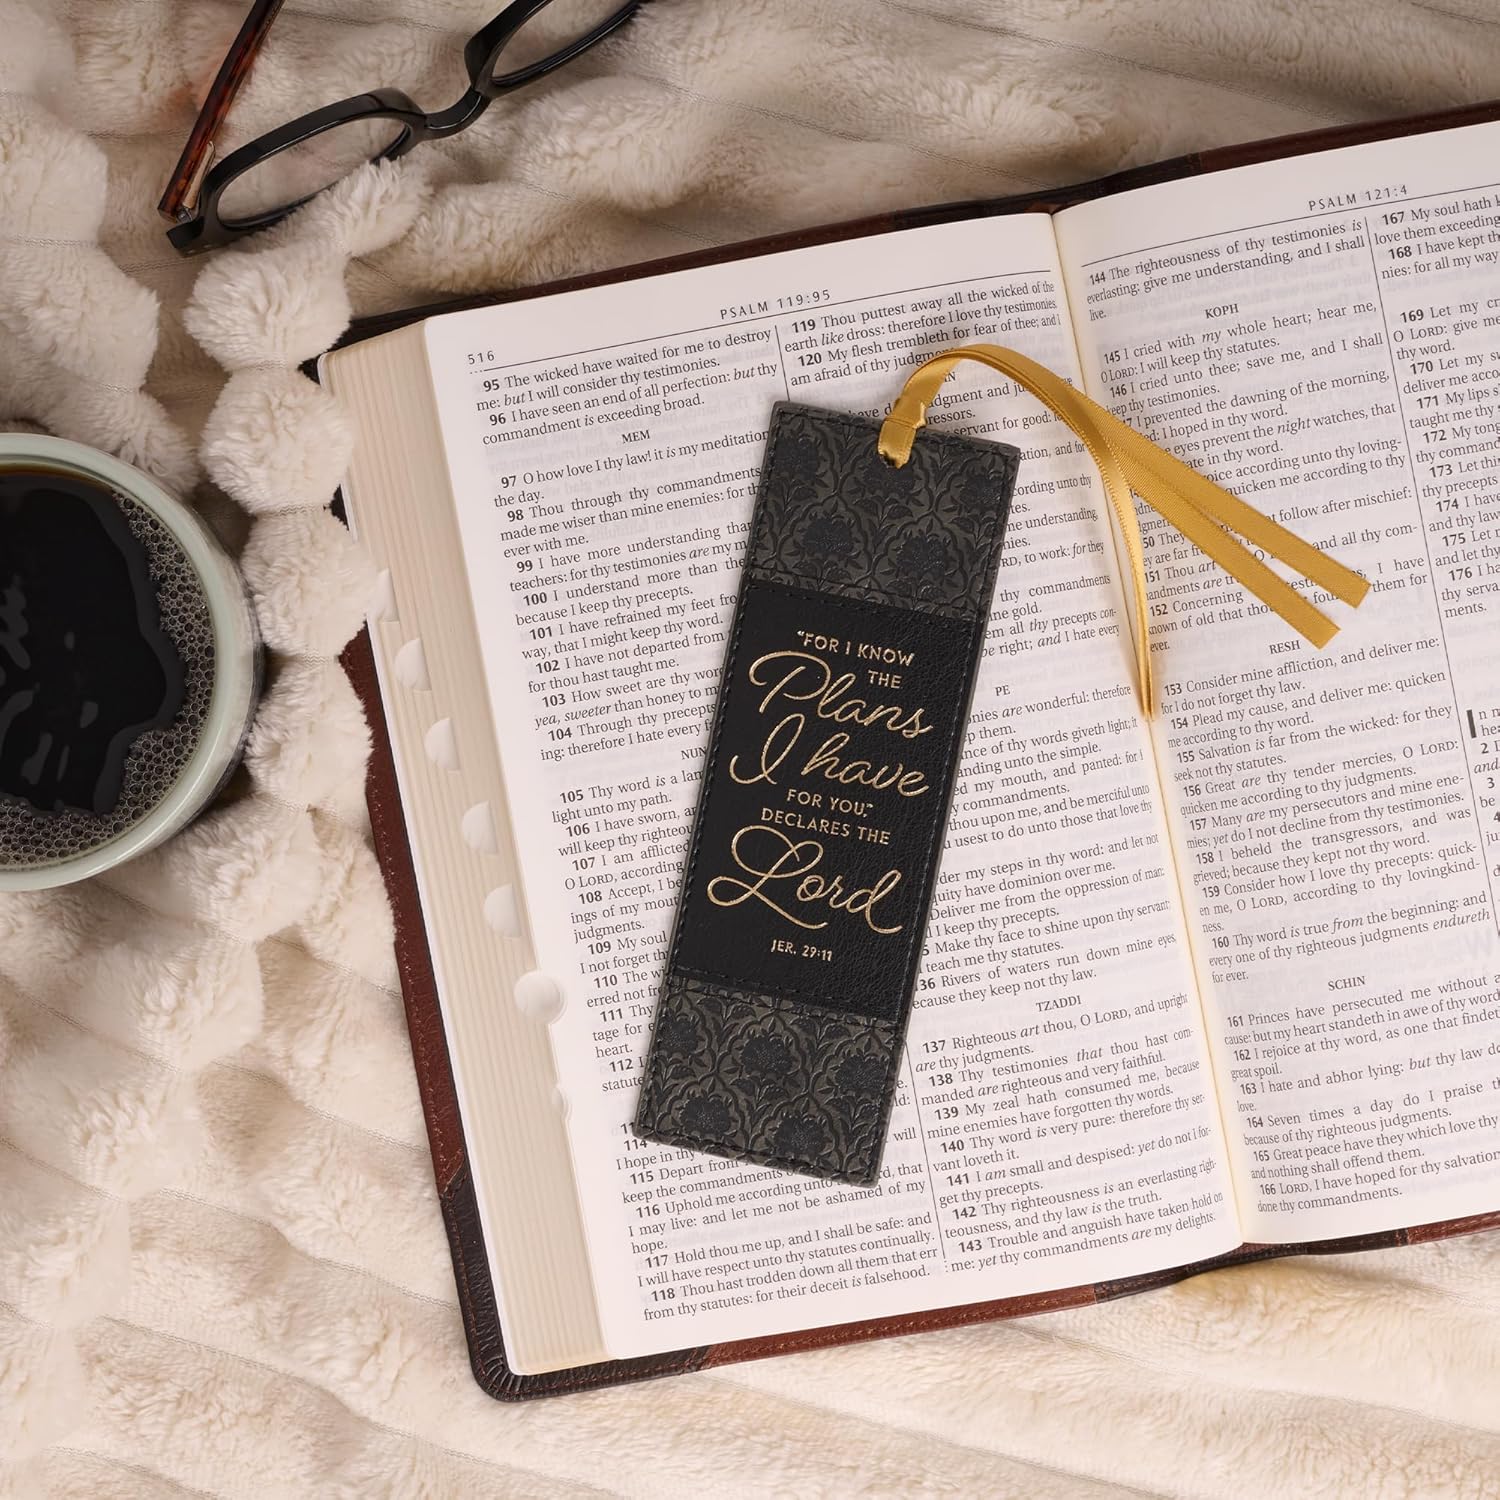 516
PSALM 119:95
95 The wicked have waited for me to destroy
me: but I will consider thy testimonies.
96 I have seen an end of all perfection: but thy
commandment is exceeding broad.
MEM
97 O how love I thy law! it is my meditation
the day.
98 Thou through thy commandments
made me wiser than mine enemies: for th
ever with me.
99 I have more understanding than
teachers: for thy testimonies are my m
100 I understand more than the
because I keep thy precepts.
101 I have refrained my feet fro
way, that I might keep thy word.
102 I have not departed from
for thou hast taught me.
103 How sweet are thy wor
yea, sweeter than honey to m
104 Through thy precepts
ing: therefore I hate every f
NUN
105 Thy word is a lam
light unto my path.
106 I have sworn, a
will keep thy righteou
107 I am afflicte
O LORD, according
108 Accept, I be
ings of my mou
judgments.
109 My soul
I not forget th
110 The w
erred not fr
111 Thy
tage for e
heart.
112 I
statute
114
I hope in thy
115 Depart from
keep the commandments
116 Uphold me according unto
that
I may live: and let me not be ashamed of my
hope.
117 Hold thou me up, and I shall be safe: and
I will have respect unto thy statutes continually.
118 Thou hast trodden down all them that err
from thy statutes: for their deceit is falsehood.
119 Thou puttest away all the wicked of the
earth like dross: therefore I love thy testimonies.
120 My flesh trembleth for fear of thee; and I
am afraid of thy judgm
judgment and
servant for good:
"FOR I KNOW
THE
Plans
I have
FOR YOU,"
DECLARES THE
Lord
JER. 29:11
PE
are wonderful: therefore
p them.
ance of thy words giveth light; it
anding unto the simple.
d my mouth, and panted: for I
y commandments.
thou upon me, and be merciful unto
usest to do unto those that love thy
der my steps in thy word: and let not
quity have dominion over me.
Deliver me from the oppression of man:
I keep thy precepts.
5 Make thy face to shine upon thy servant;
teach me thy statutes.
136 Rivers of waters run down mine eyes,
ecause they keep not thy law.
TZADDI
137 Righteous art thou, O LORD, and upright
are thy judgments.
138 Thy testimonies that thou hast com-
manded are righteous and very faithful.
139 My zeal hath consumed me, because
mine enemies have forgotten thy words.
140 Thy word is very pure: therefore thy ser-
vant loveth it.
141 I am small and despised: yet do not I for-
get thy precepts.
142 Thy righteousness is an everlasting righ-
teousness, and thy law is the truth.
143 Trouble and anguish have taken hold on
me: yet thy commandments are my delights.
PSALM 121:4
144 The righteousness of thy testimonies is
everlasting: give me understanding, and I shall
live.
KOPH
145 I cried with my whole heart; hear me,
O LORD: I will keep thy statutes.
146 I cried unto thee; save me, and I shall
keep thy testimonies.
I prevented the dawning of the morning,
ed: I hoped in thy word.
eyes prevent the night watches, that
ate in thy word.
oice according unto thy loving-
quicken me according to thy
follow after mischief:
150 They
are far fr
151 Thou art
and all thy com-
152 Concerning
I have
known of old that thou
them for
ever.
RESH
153 Consider mine affliction, and deliver me:
for I do not forget thy law.
154 Plead my cause, and deliver me: quicken
me according to thy word.
155 Salvation is far from the wicked: for they
seek not thy statutes.
156 Great are thy tender mercies, O LORD:
quicken me according to thy judgments.
157 Many are my persecutors and mine ene-
mies; yet do I not decline from thy testimonies.
158 I beheld the transgressors, and was
grieved; because they kept not thy word.
159 Consider how I love thy precepts: quick-
en me, O LORD, according to thy lovingkind-
ness.
160 Thy word is true from the beginning: and
every one of thy righteous judgments endureth
for ever.
SCHIN
161 Princes have persecuted me without a
cause: but my heart standeth in awe of thy word
162 I rejoice at thy word, as one that findet
great spoil.
163 I hate and abhor lying: but thy law do
love.
164 Seven times a day do I praise th
because of thy righteous judgments.
165 Great peace have they which love thy
and nothing shall offend them.
166 LORD, I have hoped for thy salvation
done thy commandments.
167 My soul hath k
love them exceeding
168 I have kept th
nies: for all my way
169 Let my cr
O LORD: give me
thy word.
170 Let my su
deliver me acco
171 My lips s
taught me thy s
172 My tong
thy command
173 Let thi
thy precepts
174 I have
and thy law
175 Let m
and let thy
176 I ha
thy serva
ments.